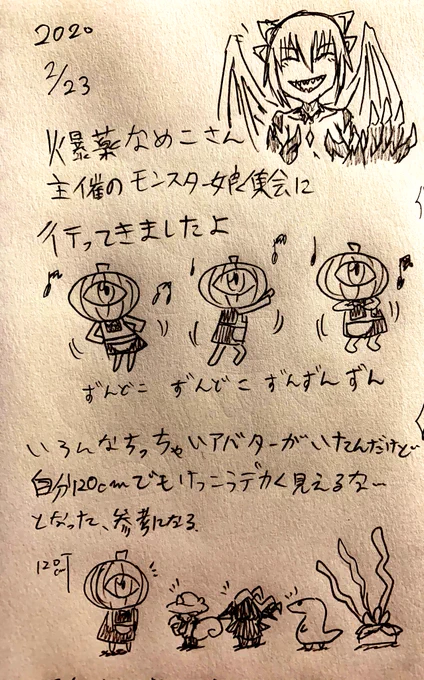 2020
2/23
爆薬なめこさん
主催のモンスター娘集会に
行ってきましたよ
ずんどこ ずんどこ ずんずん ずん
いろんなちっちゃいアバターがいたんだけど
自分120cmでもけっこうデカく見えるな〜
となった、参考になる
120cm